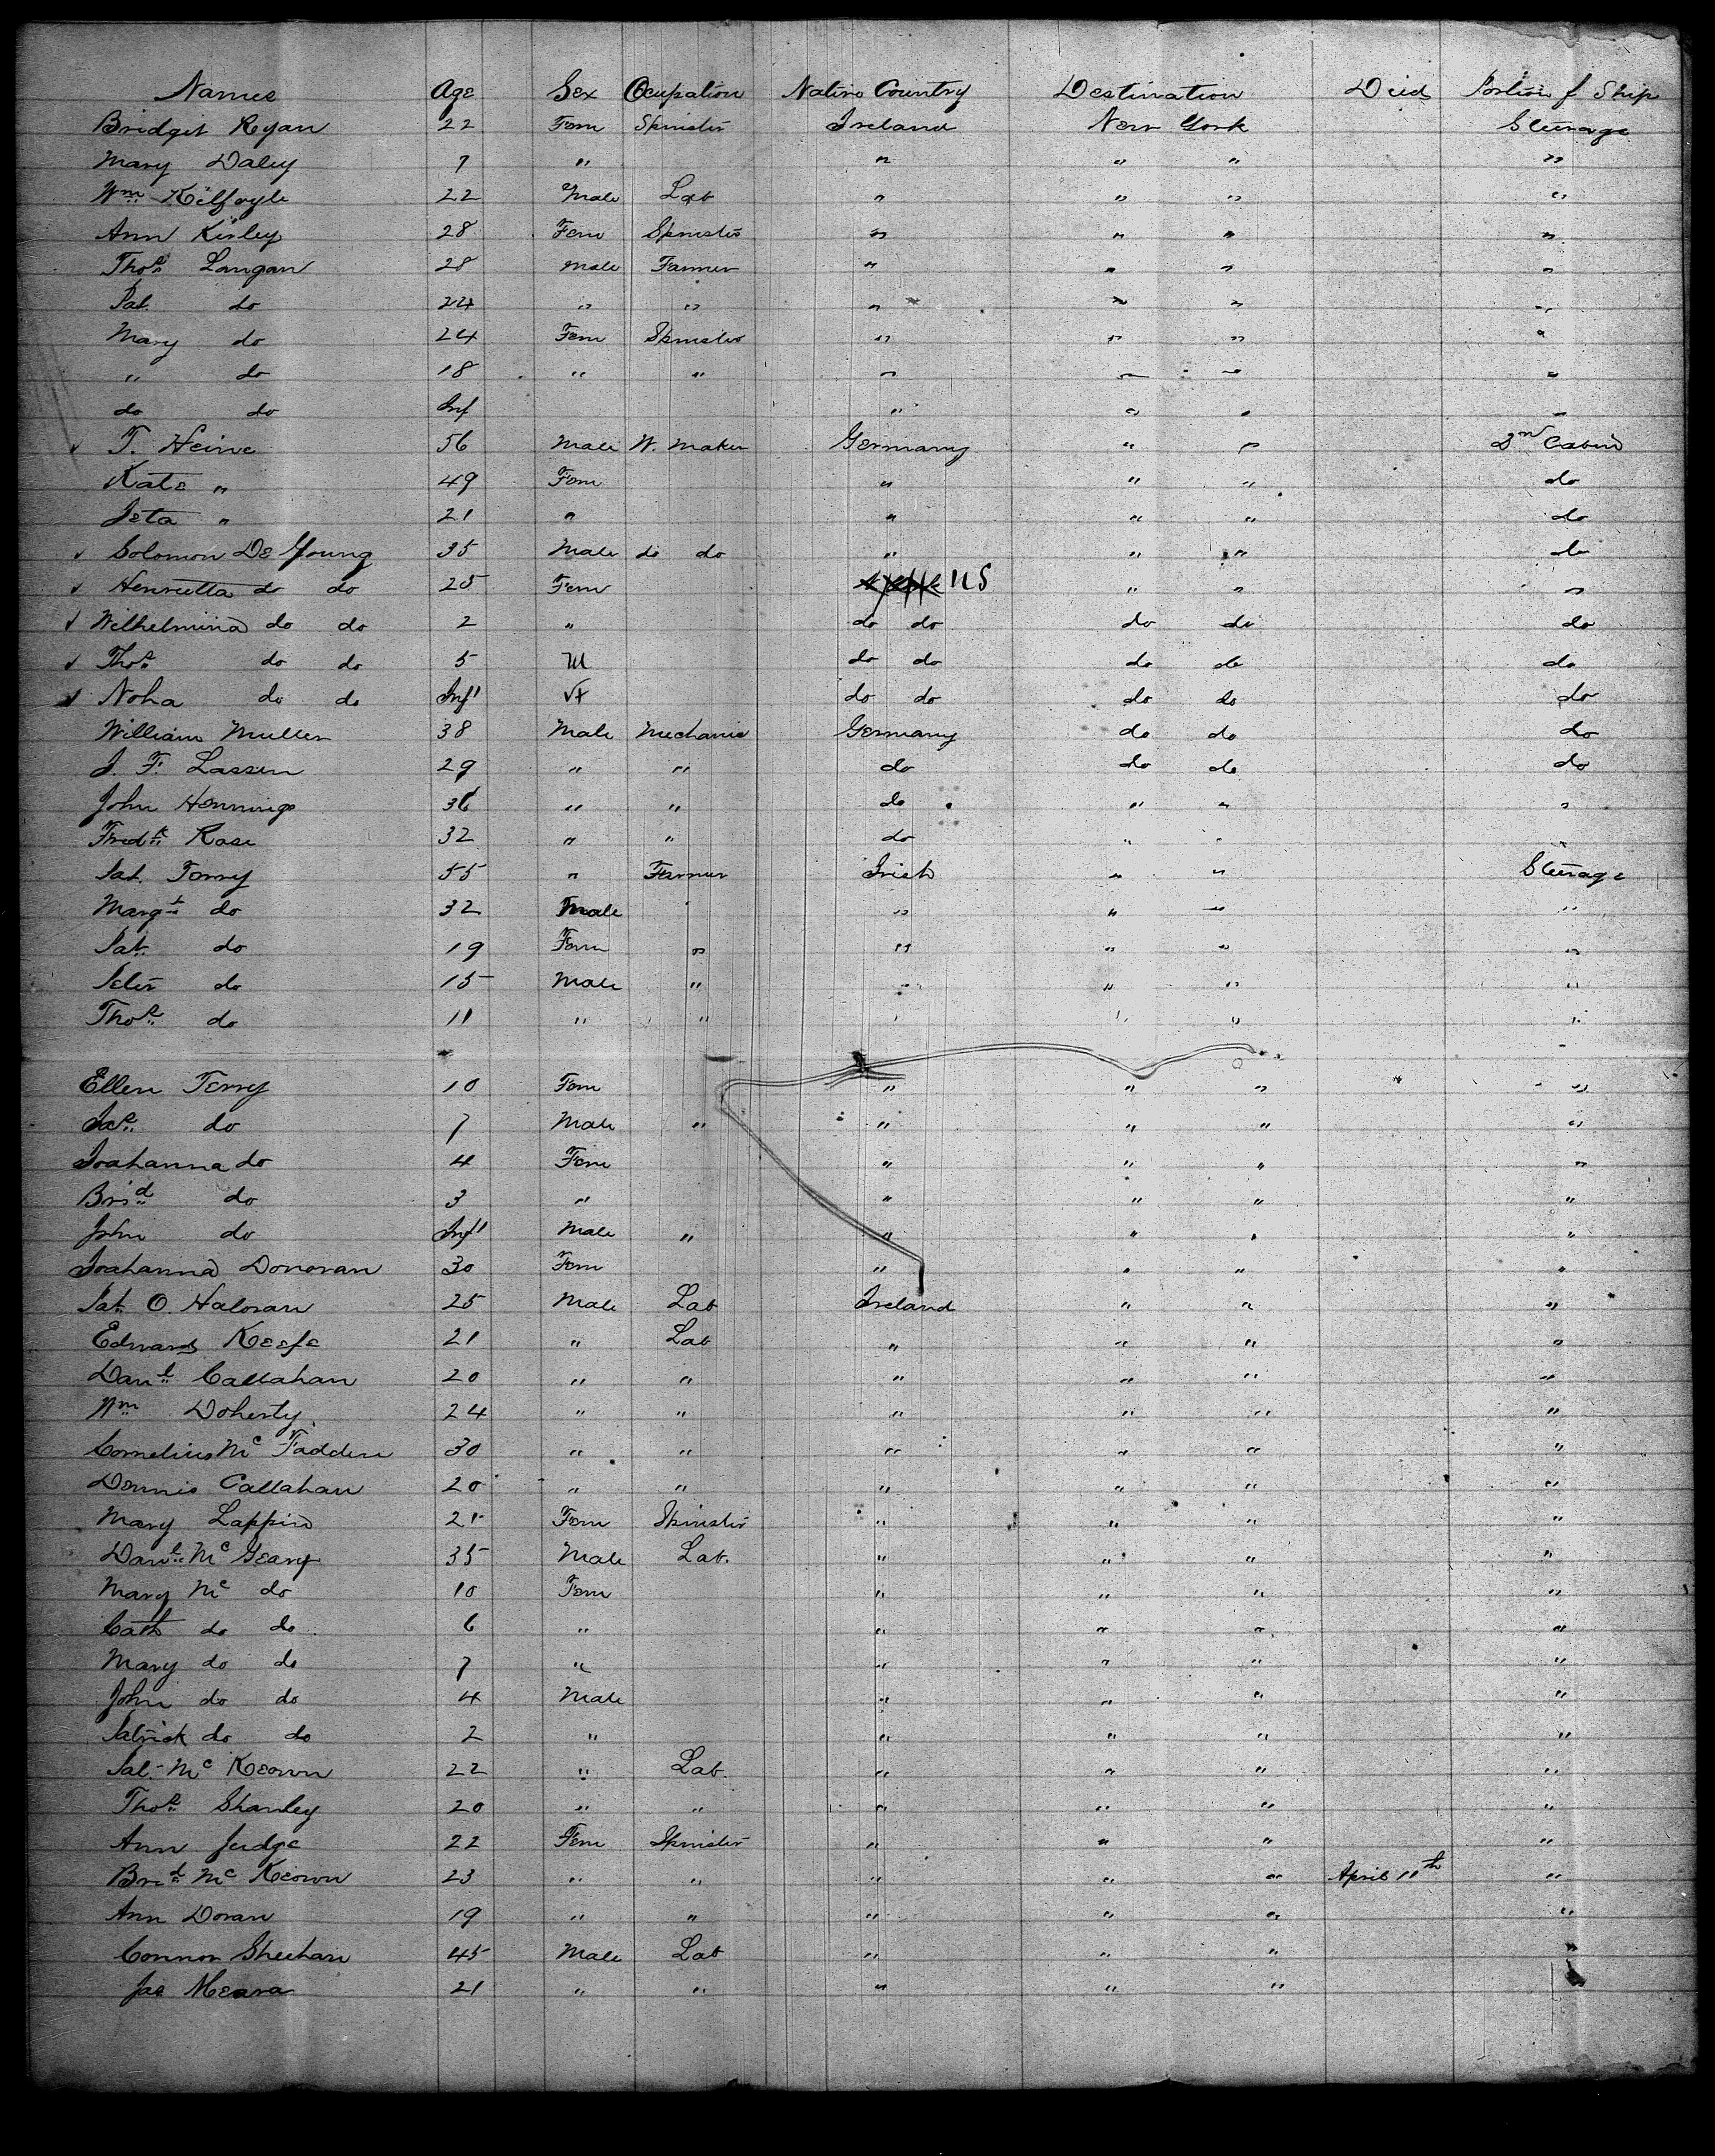 Names Age Sex Ocupation Native Country Destination Died Portion of Ship
Bridget Ryan 22 Fem Spinster Ireland New York Steerage
Mary Daley 7 " " " " "
Wm Kilfoyle 22 Male Lab " " " "
Ann Kirley 28 Fem Spinster " " " "
Thos Langan 28 Male Farmer " " " "
Pat do 24 " " " " " "
Mary do 24 Fem Spinster " " " "
" do 18 " " " " " "
do do Inf " " " "
T. Heine 56 Male W. Maker Germany " " 2nd Cabin
Kate " 49 Fem " " " do
Jeta " 21 " " " " do
Solomon De Young 35 Male do do " " " do
Henrietta do do 25 Fem US " " "
Wilhelmina do do 2 " do do do do do
Thos do do 5 M do do do do do
Noha do do Inft do do do do do
William Muller 38 Male Mechanic Germany do do do
J. F. Lassen 29 " " do do do do
John Hennings 36 " " do " " "
Fredk Rose 32 " " do " " "
Pat. Torry 55 " Farmer Irish " " Steerage
Margt do 32 Male " " " "
Pat do 19 Fem " " " " "
Peter do 15 Male " " " " "
Thos do 11 " " " " " "
Ellen Torry 10 Fem " " " "
Jas do 7 Male " " " " "
Joahanna do 4 Fem " " " "
Brid do 3 " " " " "
John do Inft Male " " " " "
Joahanna Donovan 30 Fem " " " "
Pat O. Haloran 25 Male Lab Ireland " " "
Edward Keefe 21 " Lab " " " "
Danl Callahan 20 " " " " " "
Wm Doherty 24 " " " " " "
Cornelius Mc Fadden 30 " " " " " "
Dennis Callahan 20 " " " " " "
Mary Lappin 21 Fem Spinster " " " "
Danl Mc Geary 35 Male Lab. " " " "
Mary Mc do 10 Fem " " " "
Cath do do 6 " " " " "
Mary do do 7 " " " " "
John do do 4 Male " " " "
Patrick do do 2 " " " " "
Pat Mc Keown 22 " Lab. " " " "
Thos Shanley 20 " " " " " "
Ann Judge 22 Fem Spinster " " " "
Brid Mc Keown 23 " " " " " April 11th "
Ann Doran 19 " " " " " "
Connor Sheehan 45 Male Lab " " " "
Jas Meara 21 " " " " "